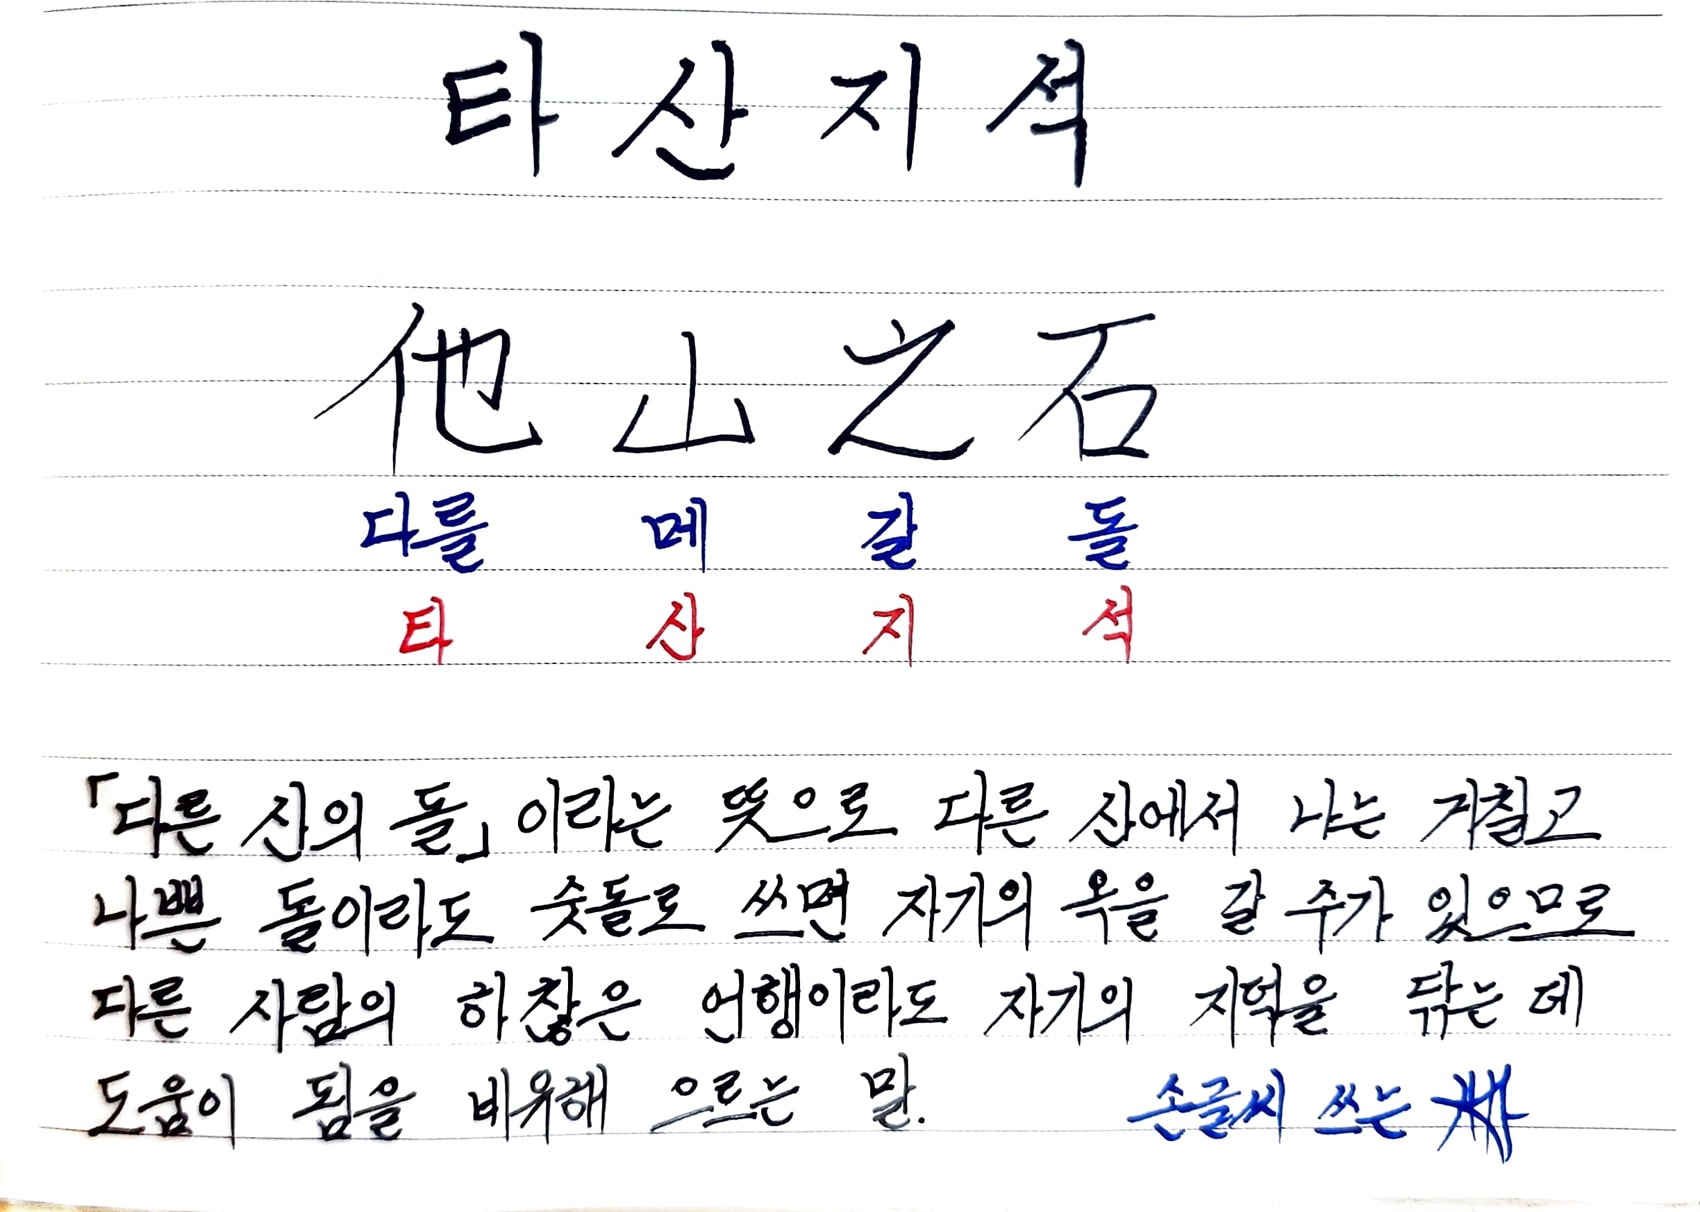 타산지석
他山之石
다를 메 갈 돌
타 산 지 석
「다른 산의 돌」이라는 뜻으로 다른 산에서 나는 거칠고
나쁜 돌이라도 숫돌로 쓰면 자기의 옥을 갈 수가 있으므로
다른 사람의 하찮은 언행이라도 자기의 지덕을 닦는 데
도움이 됨을 비유해 으르는 말.
손글씨 쓰는